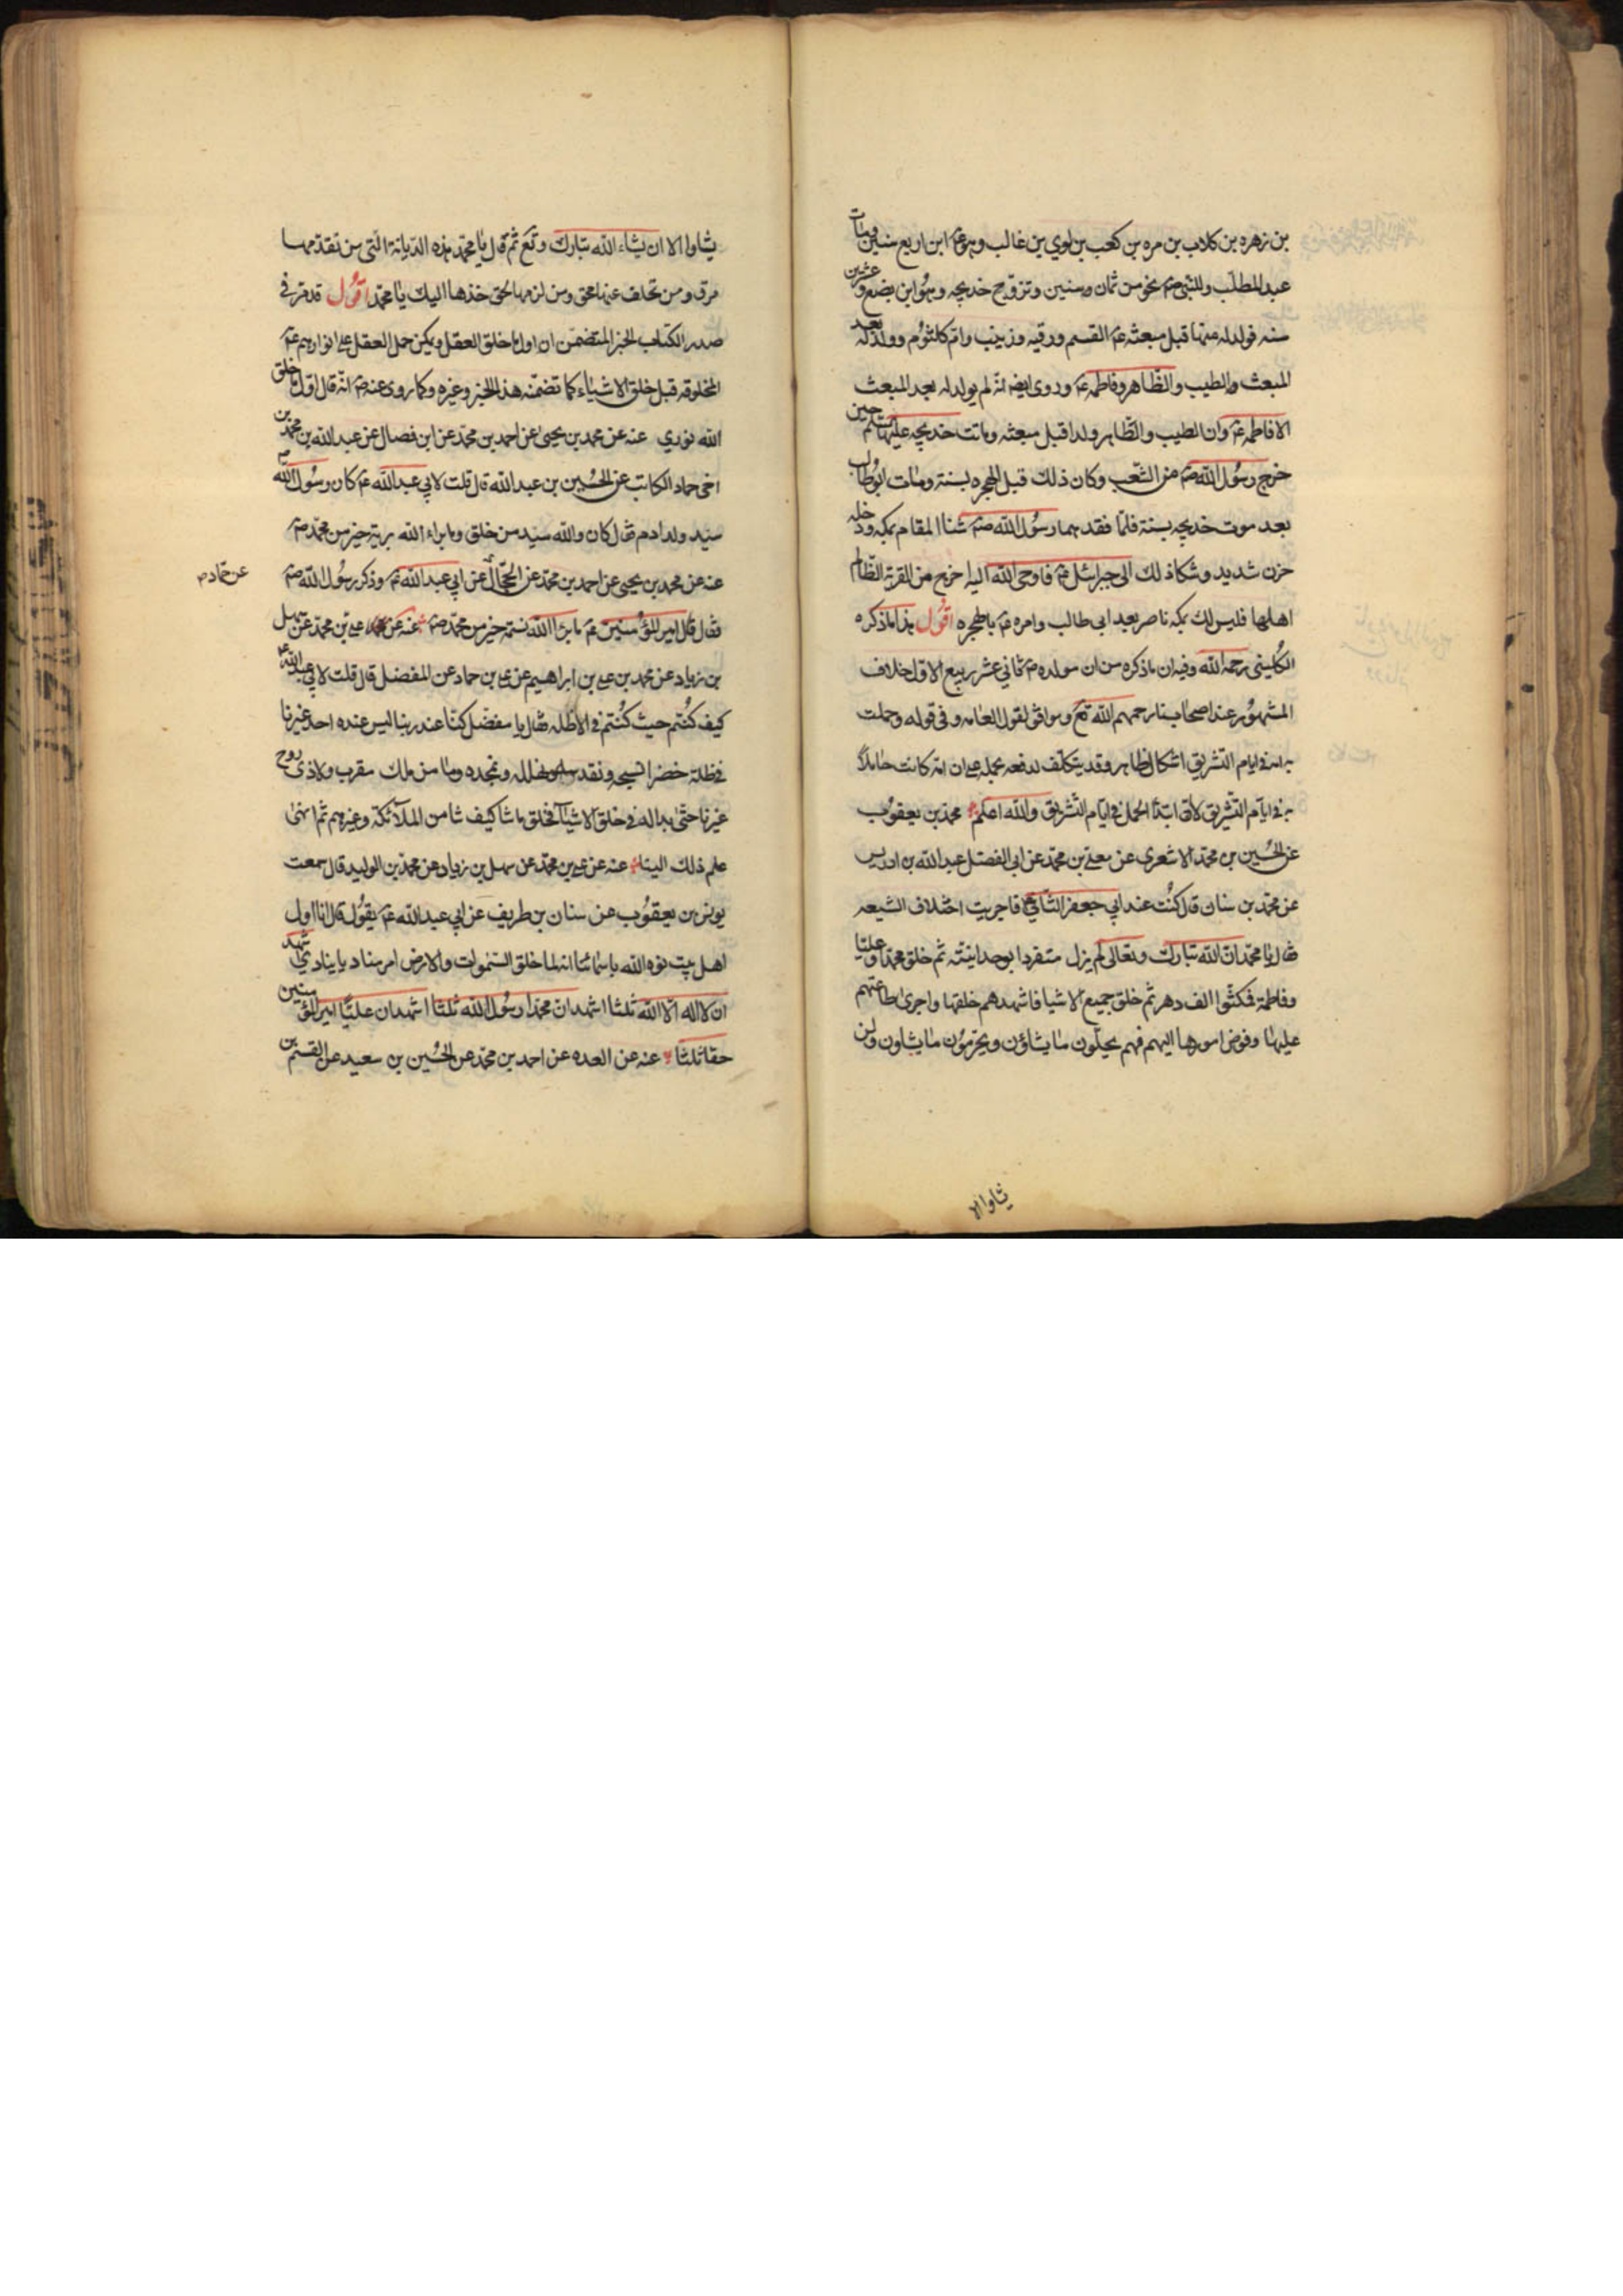 بن زهره بن كلاب بن مره بن كعب بن لوي بن غالب وهو ع ابن اربع سنين ومات
عبد المطلب وللنبي ص نحو من ثمان سنين وتزوج خديجه وهو ابن بضع وعشرين
سنه فولد له منها قبل مبعثه ع القسم ورقيه وزينب وام كلثوم وولد له بعد
المبعث الطيب والطاهر وفاطمه ع وروى ايضا انه لم يولد له بعد المبعث
الا فاطمه ع وان الطيب والطاهر ولدا قبل مبعثه وماتت خديجه عليها السلم حين
خرج رسول الله ص من الشعب وكان ذلك قبل الهجره بسنة ومات ابو طالب
بعد موت خديجه بسنة فلما فقدهما رسول الله ص شنا المقام بمكه ودخله
حزن شديد وشكا ذلك الى جبرائيل ع فاوحى الله اليه اخرج من القرية الظالم
اهلها فليس لك بمكه ناصر بعد ابى طالب وامره ع بالهجره اقول هذا ما ذكره
الكليني رحمه الله وفيه ان ما ذكره من ان مولده ص ثاني عشر ربيع الاول خلاف
المشهور عند اصحابنا رحمهم الله تع وموافق لقول العامه وفى قوله وحملت
به امه فى ايام التشريق اشكال ظاهر وقد يتكلف لدفعه بحمله على ان امه كانت حاملا
به فى ايام التشريق لا ان ابتدا الحمل فى ايام التشريق والله اعلم محمد بن يعقوب
عن الحسين بن محمد الاشعري عن معلى بن محمد عن ابى الفضل عبد الله بن ادريس
عن محمد بن سنان قال كنت عند ابي جعفر الثاني ع فاجريت اختلاف الشيعه
فقال يا محمد ان الله تبارك وتعالى لم يزل متفردا بوحدانيته ثم خلق محمدا وعليا
وفاطمة فمكثوا الف دهر ثم خلق جميع الاشيا فاشهدهم خلقها واجرى طاعتهم
عليها وفوض امورها اليهم فهم يحلون ما يشاؤن ويحرمون ما يشاون ولن
يشاوا الا
يشاوا الا ان يشاء الله تبارك وتع ثم قال يا محمد هذه الديانة التى من تقدمها
مرق ومن تخلف عنها محق ومن لزمها لحق خذها اليك يا محمد اقول قد مر فى
صدر الكتاب الخبر المتضمن ان اول ما خلق العقل ويمكن حمل العقل على انوارهم ع
المخلوقه قبل خلق الاشياء كما تضمنه هذا الخبر وغيره وكما روى عنه ص انه قال اول ما خلق
الله نوري عنه عن محمد بن يحيى عن احمد بن محمد عن ابن فضال عن عبد الله بن محمد بن
اخى حماد الكاتب عن الحسين بن عبد الله قال قلت لابي عبد الله ع كان رسول الله ص
سيد ولد ادم فقال كان والله سيد من خلق وما براء الله برية خير من محمد ص
عنه عن محمد بن يحيى عن احمد بن محمد عن الحجال عن ابي عبد الله ع وذكر رسول الله ص
عن حماد
فقال قال امير المؤمنين ع ما برا الله نسمه خير من محمد ص عنه عن على بن محمد عن سهل
بن زياد عن محمد بن على بن ابراهيم عن على بن حماد عن المفضل قال قلت لابي عبد الله ع
كيف كنتم حيث كنتم فى الاظله فقال يا مفضل كنا عند ربنا ليس عنده احد غيرنا
فى ظلة خضرا نسبحه ونقدسه ونهلله ونمجده وما من ملك مقرب ولا ذى روح
غيرنا حتى بدا له فى خلق الاشيآ فخلق ما شا كيف شا من الملآئكة وغيرهم ثم انهى
علم ذلك الينا عنه عن على بن محمد عن سهل بن زياد عن محمد بن الوليد قال سمعت
يونس بن يعقوب عن سنان بن طريف عن ابي عبد الله ع يقول قال انا اول
اهل بيت نوه الله باسمائنا انه لما خلق السموات والارض امر مناديا ينادي اشهد
ان لا اله الا الله ثلثا اشهد ان محمدا رسول الله ثلثا اشهد ان عليا امير المؤمنين
حقا ثلثا عنه عن العده عن احمد بن محمد عن الحسين بن سعيد عن القسم بن